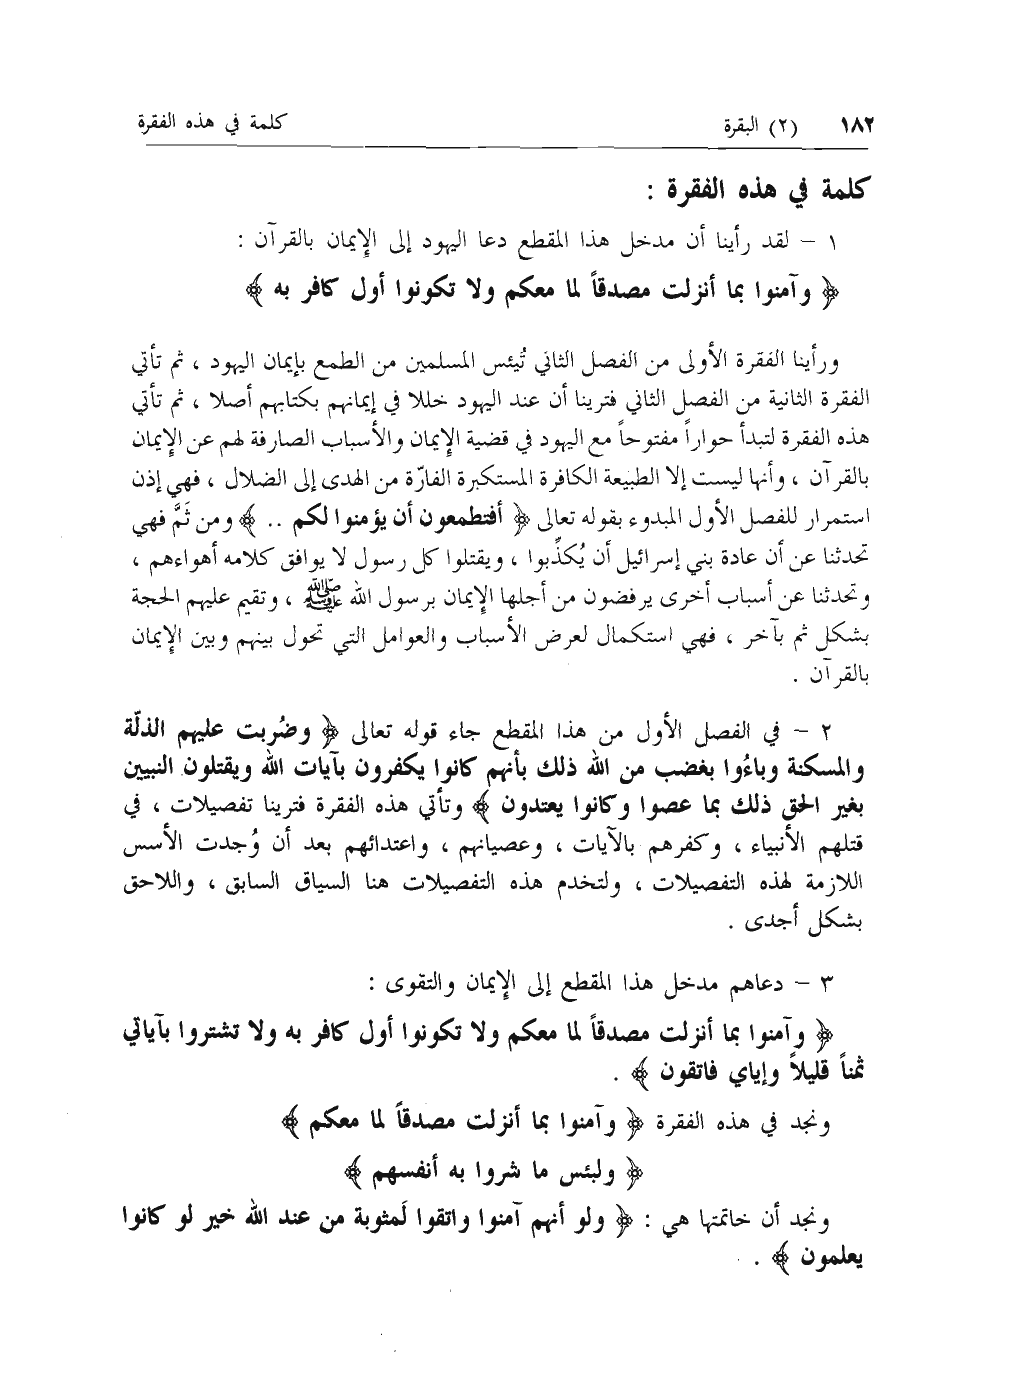 ١٨٢ (٢) البقرة كلمة في هذه الفقرة
كلمة في هذه الفقرة :
١ – لقد رأينا أن مدخل هذا المقطع دعا اليهود إلى الإيمان بالقرآن :
﴿ وآمنوا بما أنزلت مصدقاً لما معكم ولا تكونوا أول كافر به ﴾
ورأينا الفقرة الأولى من الفصل الثاني تُيئس المسلمين من الطمع بإيمان اليهود ، ثم تأتي
الفقرة الثانية من الفصل الثاني فترينا أن عند اليهود خللا في إيمانهم بكتابهم أصلا ، ثم تأتي
هذه الفقرة لتبدأ حواراً مفتوحاً مع اليهود في قضية الإيمان والأسباب الصارفة لهم عن الإيمان
بالقرآن ، وأنها ليست إلا الطبيعة الكافرة المستكبرة الفارّة من الهدى إلى الضلال ، فهي إذن
استمرار للفصل الأول المبدوء بقوله تعالى ﴿ أفتطمعون أن يؤمنوا لكم .. ﴾ ومن ثَمَّ فهي
تحدثنا عن أن عادة بني إسرائيل أن يُكذِّبوا ، ويقتلوا كل رسول لا يوافق كلامه أهواءهم ،
وتحدثنا عن أسباب أخرى يرفضون من أجلها الإيمان برسول الله ﷺ ، وتقيم عليهم الحجة
بشكل ثم بآخر ، فهي استكمال لعرض الأسباب والعوامل التي تحول بينهم وبين الإيمان
بالقرآن .
٢ – في الفصل الأول من هذا المقطع جاء قوله تعالى ﴿ وضُربت عليهم الذلّة
والمسكنة وباءُوا بغضب من الله ذلك بأنهم كانوا يكفرون بآيات الله ويقتلون النبيين
بغير الحق ذلك بما عصوا وكانوا يعتدون ﴾ وتأتي هذه الفقرة فترينا تفصيلات ، في
قتلهم الأنبياء ، وكفرهم بالآيات ، وعصيانهم ، واعتدائهم بعد أن وُجدت الأسس
اللازمة لهذه التفصيلات ، ولتخدم هذه التفصيلات هنا السياق السابق ، واللاحق
بشكل أجدى .
٣ – دعاهم مدخل هذا المقطع إلى الإيمان والتقوى :
﴿ وآمنوا بما أنزلت مصدقاً لما معكم ولا تكونوا أول كافر به ولا تشتروا بآياتي
ثمناً قليلاً وإياي فاتقون ﴾ .
ونجد في هذه الفقرة ﴿ وآمنوا بما أنزلت مصدقاً لما معكم ﴾
﴿ ولبئس ما شروا به أنفسهم ﴾
ونجد أن خاتمتها هي : ﴿ ولو أنهم آمنوا واتقوا لَمثوبة من عند الله خير لو كانوا
يعلمون ﴾ .